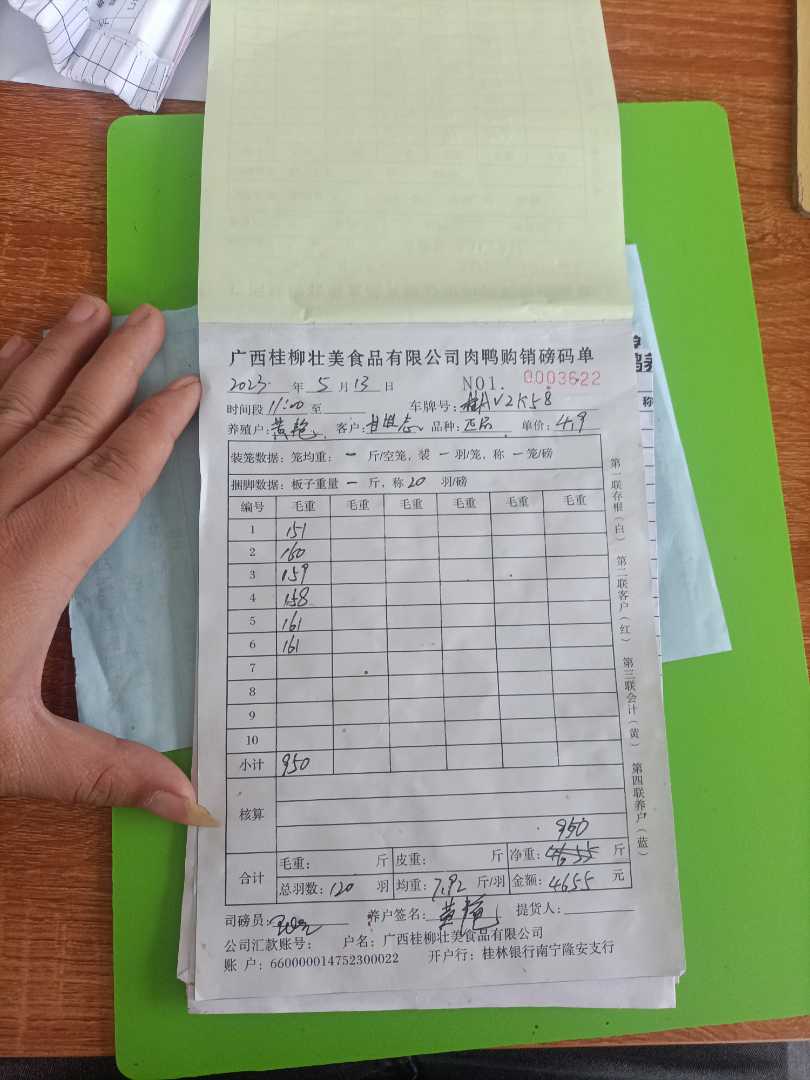 广西桂柳壮美食品有限公司肉鸭购销磅码单
2023 年 5 月 13 日 NO1. 0003622
时间段 11:00 至 车牌号: 桂AV2K58
养殖户: 黄艳 客户: 品种: 单价: 4.9
装笼数据: 笼均重: 一 斤/空笼, 装 一 羽/笼, 称 一 笼/磅
捆脚数据: 板子重量 一 斤, 称 20 羽/磅
编号 毛重 毛重 毛重 毛重 毛重 毛重
1 151
2 160
3 159
4 158
5 161
6 161
7
8
9
10
小计 950
核算
950
合计 毛重: 斤 皮重: 斤 净重: 4655 斤
总羽数: 120 羽 均重: 7.92 斤/羽 金额: 4655 元
司磅员: 养户签名: 黄艳 提货人:
公司汇款账号: 户名: 广西桂柳壮美食品有限公司
账 户: 660000014752300022 开户行: 桂林银行南宁隆安支行
第一联存根(白) 第二联客户(红) 第三联会计(黄) 第四联养户(蓝)